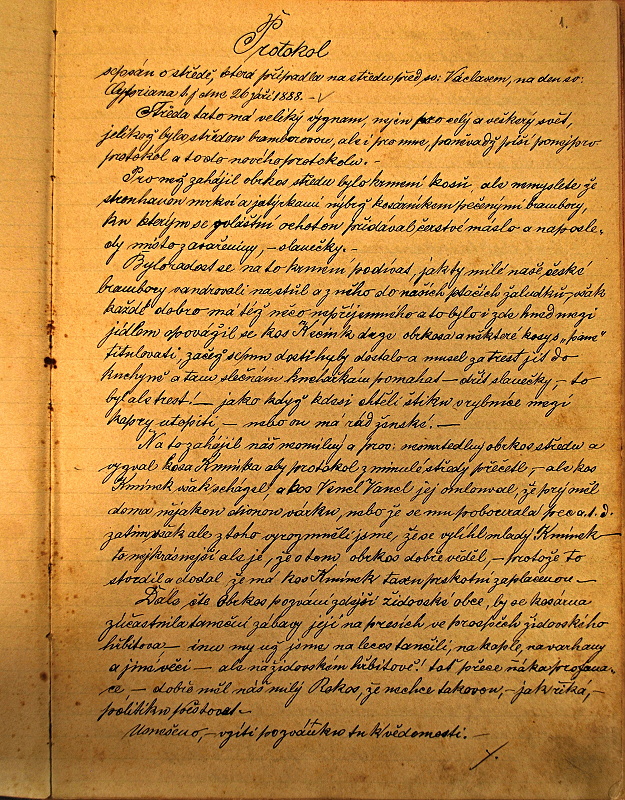 1.
Protokol
sepsán o středě, která připadla na středu před sv: Václavem, na den sv:
Cypriana b. j dne 26 září 1888. –
Středa tato má veliký význam, nejen pro celý a veškerý svět,
jelikož byla středou bramborovou, ale i pro mne, poněvadž píši ponejprv
protokol a to do nového protokolu. –
Pro než zahájil obrkos středu bylo krmení kosů, ale nemyslete že
strouhanou mrkví a játýrkami nýbrž kosárníkem pečenými brambory,
ku kterým se zvláštní ochotou přidával čerstvé máslo a naposle-
dy místo zavařeniny, – slanečky. –
Byla radost se na to krmení podívat, jak ty milé naše české
brambory vandrovali na stůl a z něho do našich ptačích žaludků, však
každé dobro má též něco nepříjemného a to bylo i zde hned mezi
jídlem opovážil se kos Křičník dnes obrkosa a některé kosy „pane"
titulovati, začež sepsuto dosti huby dostalo a musel za trest jít do
kuchyně a tam slečnám kuchařkám pomahat – dřít slanečky, – to
byl ale trest! – jako když kdesi chtěli štiku v rybníce mezi
kapry utopiti, – nebo on má rád ženské. –
Na to zahájil náš pomilný a prov: nesmrtedlný obrkos středu a
vyzval kosa Kmínka aby protokol z minulé středy přečetl, – ale kos
Kmínek však scházel, a kos Vencl Vancl jej omlouval, že prý měl
doma nějakou divnou várku, nebo že se mu pobourala pec a. t. d.
zatím však ale z toho vyrozuměli jsme, že se vylíhl mladý Kmínek
to nejkrásnější ale je, že o tom obrkos dobře věděl, – protože to
stvrdil a dodal že má kos Kmínek taxu prskotní zaplacenou –
Dále čte Obrkos pozvání zdejší židovské obce, by se kosárna
zúčastnila tamější zábavy její na prosích ve prospěch židovského
hřbitova – inu my už jsme na lecos tančili, na kaple, na varhany
a jiné věci – ale na židovském hřbitově! toť přece ňáká profana-
ce – dobře měl náš milý Rokos, že nechce takovou, – jak říká, –
politiku pěstovat –
Usnešeno, – vzíti pozvánku tu k vědomosti. –